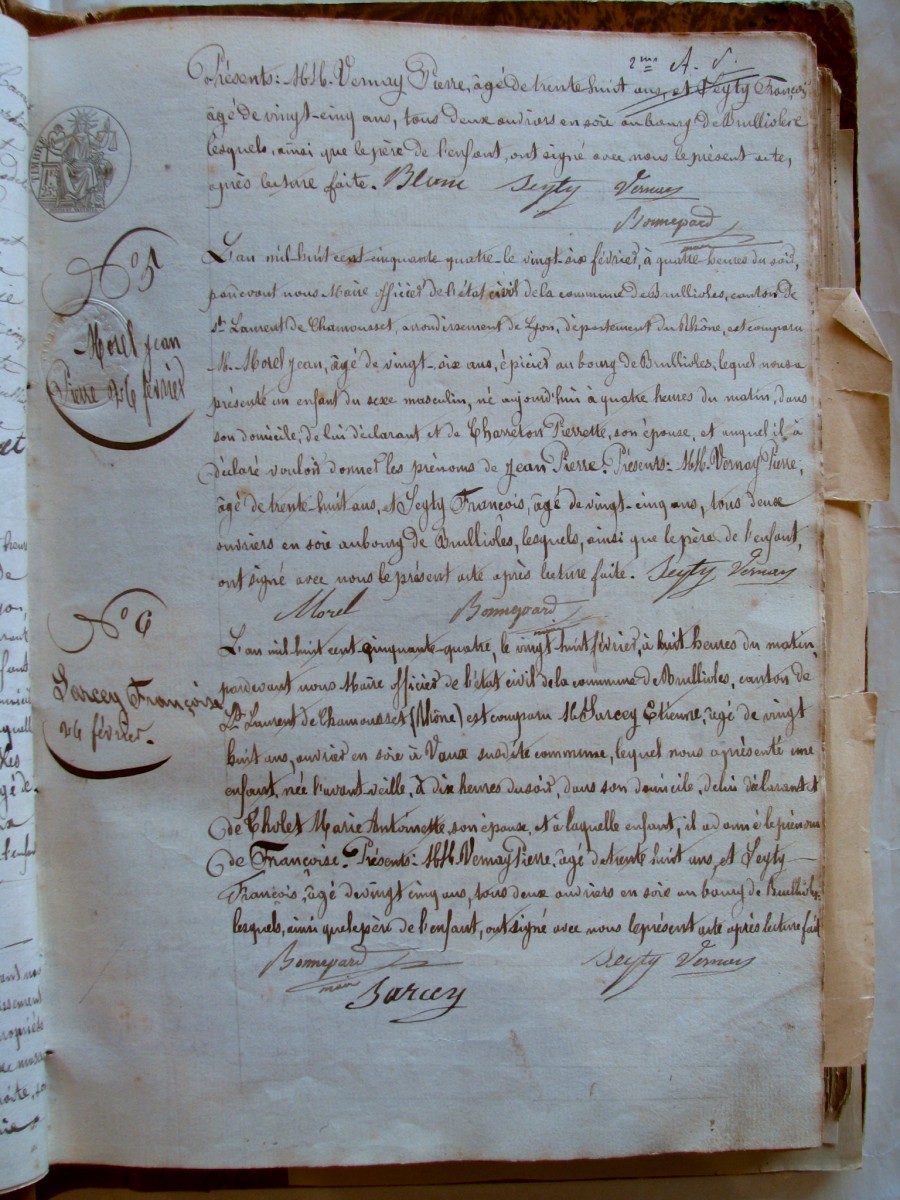 2me A. S.
Présents: MM. Vernay Pierre, âgé de trente-huit ans, et Seyty François
âgé de vingt-cinq ans, tous deux ouvriers en soie au bourg de Brullioles
lesquels, ainsi que le père de l'enfant, ont signé avec nous le présent acte,
après lecture faite. Blanc Seyty Vernay
Bonnepard
maire
N° 5
Morel Jean
Pierre 26 février
L'an mil-huit cent-cinquante quatre-le vingt-six février, à quatre heures du soir,
pardevant nous Maire officier de l'état civil de la commune de Brullioles, canton de
St. Laurent de Chamousset, arrondissement de Lyon, département du Rhône, est comparu
M. Morel Jean, âgé de vingt-six ans, épicier au bourg de Brullioles, lequel nous a
présenté un enfant du sexe masculin, né aujourd'hui à quatre heures du matin, dans
son domicile, de lui déclarant et de Charreton Pierrette, son épouse, et auquel il a
déclaré vouloir donner les prénoms de Jean Pierre. Présents: MM. Vernay Pierre,
âgé de trente-huit ans, et Seyty François, âgé de vingt-cinq ans, tous deux
ouvriers en soie au bourg de Brullioles, lesquels, ainsi que le père de l'enfant,
ont signé avec nous le présent acte après lecture faite. Seyty Vernay
Morel Bonnepard
maire
N° 6
Sarcey Françoise
26 février.
L'an mil huit cent cinquante-quatre, le vingt-huit février, à huit heures du matin,
pardevant nous Maire officier de l'état civil de la commune de Brullioles, canton de
St. Laurent de Chamousset (Rhône) est comparu M. Sarcey Etienne, âgé de vingt
huit ans, ouvrier en soie à Vaux susdite commune, lequel nous a présenté une
enfant, née l'avant veille, à dix heures du soir, dans son domicile, de lui déclarant et
de Cholet Marie Antoinette, son épouse, et à laquelle enfant, il a donné le prénom
de Françoise. Présents: MM. Vernay Pierre, âgé de trente huit ans, et Seyty
François, âgé de vingt cinq ans, tous deux ouvriers en soie au bourg de Brullioles
lesquels, ainsi que le père de l'enfant, ont signé avec nous le présent acte après lecture fait
Bonnepard Seyty Vernay
maire
Sarcey